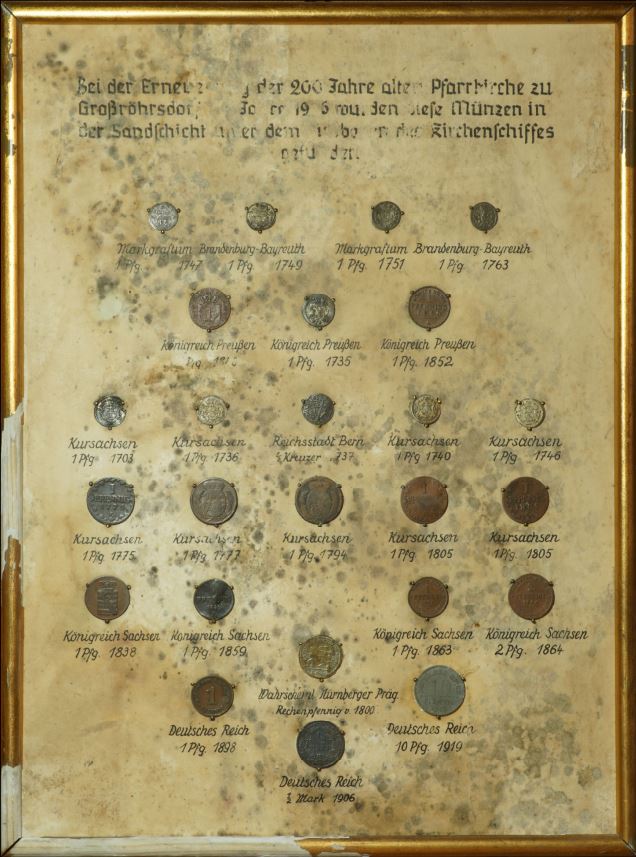 Bei der Erneuerung der 200 Jahre alten Pfarrkirche zu
Großröhrsdorf Jahre 19 6 wurden diese Münzen in
der Sandschicht unter dem des Kirchenschiffes
gefunden.
Markgraftum Brandenburg-Bayreuth Markgraftum Brandenburg-Bayreuth
1 Pfg. 1747 1 Pfg. 1749 1 Pfg. 1751 1 Pfg. 1763
Königreich Preußen Königreich Preußen Königreich Preußen
Pfg. 1 Pfg. 1735 1 Pfg. 1852
Kursachsen Kursachsen Reichsstadt Bern Kursachsen Kursachsen
1 Pfg 1703 1 Pfg. 1736 ½ Kreuzer 737 1 Pfg 1740 1 Pfg 1746
Kursachsen Kursachsen Kursachsen Kursachsen Kursachsen
1 Pfg. 1775 1 Pfg 1777 1 Pfg. 1794 1 Pfg. 1805 1 Pfg. 1805
Königreich Sachsen Königreich Sachsen Königreich Sachsen Königreich Sachsen
1 Pfg. 1838 1 Pfg. 1859 1 Pfg. 1863 2 Pfg. 1864
Wahrscheinl. Nürnberger Präg.
Rechenpfennig v. 1800
Deutsches Reich Deutsches Reich
1 Pfg. 1898 10 Pfg. 1919
Deutsches Reich
½ Mark 1906